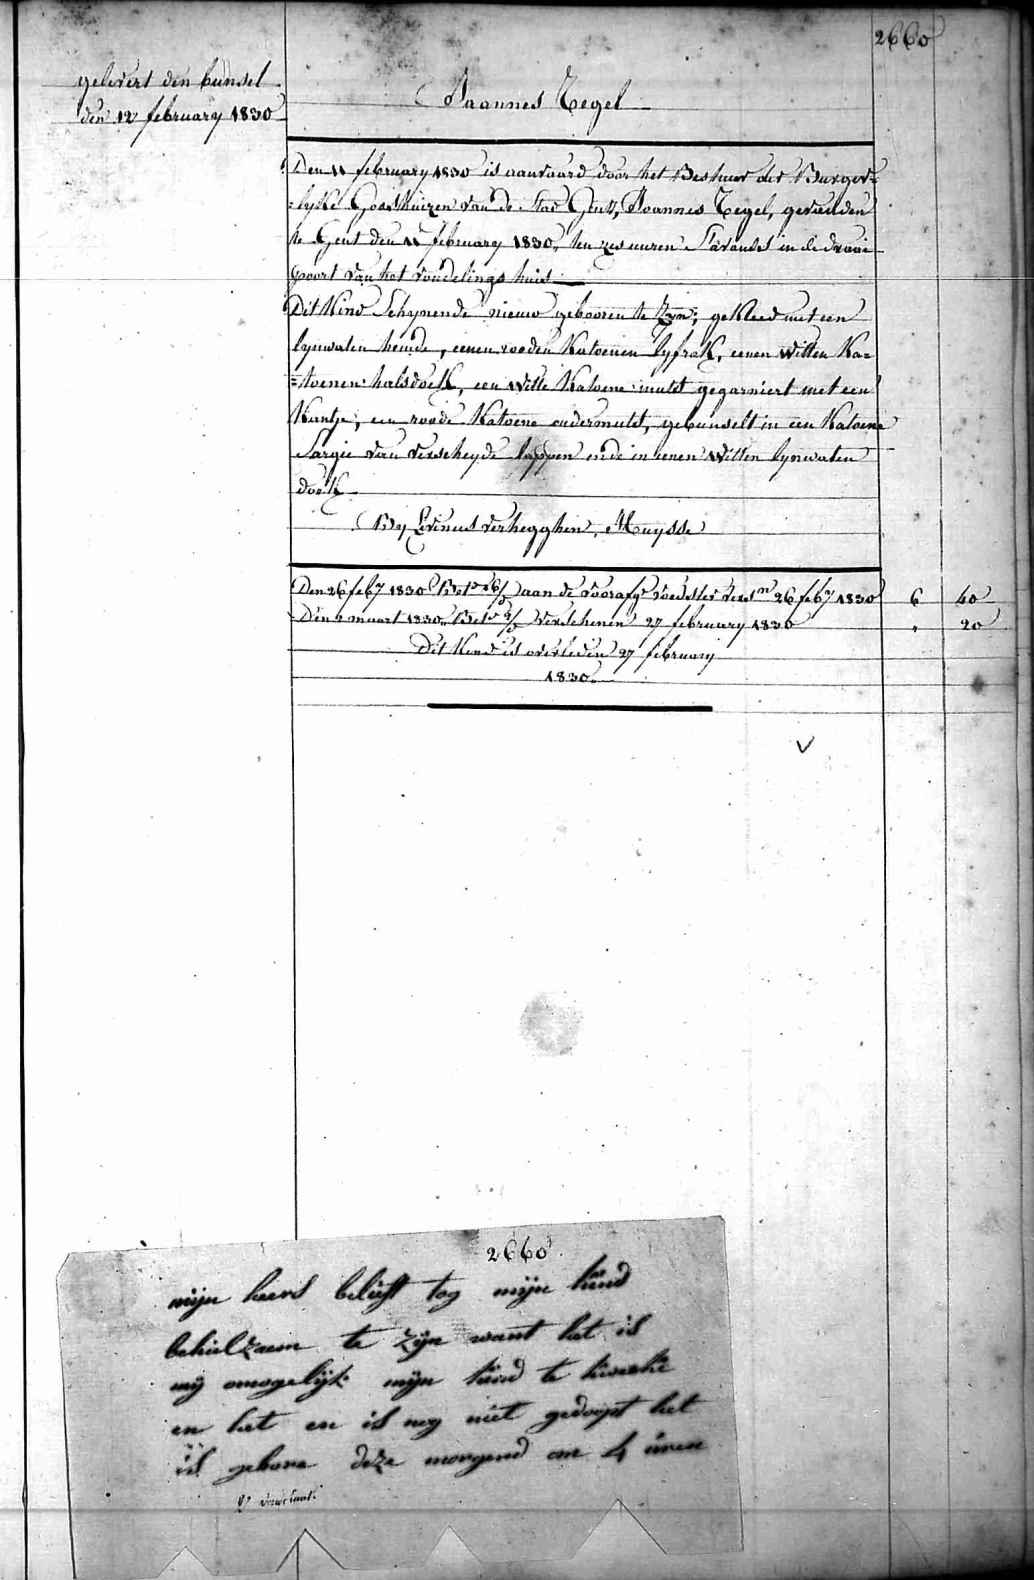 2660
gelevert den bunsel
den 12 february 1830
Joannes Tegel
Den 11 february 1830 is aanvaard door het Bestuur der Burger=
=lyke Godshuizen van de stad Gent, Joannes Tegel, gevonden
te Gent den 11 february 1830, ten zes uuren s'avonds in de draai
poort van het vondelings huis
Dit Kind Schynende nieuw gebooren te Zyn; gekleed met een
lynwaten hemde, eenen rooden Katoenen lyfrok, eenen witten Ka=
=toenen halsdoek, een witte Katoene muts gegarniert met een
Kantje, een roode Katoene ondermuts, gebunselt in een Katoene
Sargie van verscheyde lappen ende in eenen witten lynwaten
doek
By Livinus Verhegghen, Muysse
Den 26 feby 1830 aan de voorafge voedster 26 feby 1830 6 40
Den 2 maart 1830 verschenen 27 february 1830 " 20
Dit Kind is overleden 27 february
1830.
2660
mijn heers belieft tog mijn kind
behielzaem te zijn want het is
mij omogelijk mijn kind te kweeke
en het en is nog niet gedoopt het
is gebore deze morgend om 4 uren